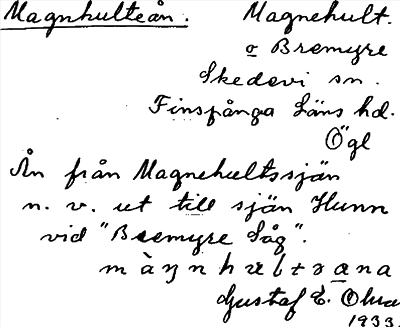 Magnhulteån. Magnehult.
o Bremyre
Skedevi sn.
Finspånga Läns hd.
Ögl
Ån från Magnehultssjön
n. v. ut till sjön Hunn
vid "Bremyre Såg".
Gustaf E.
1933.